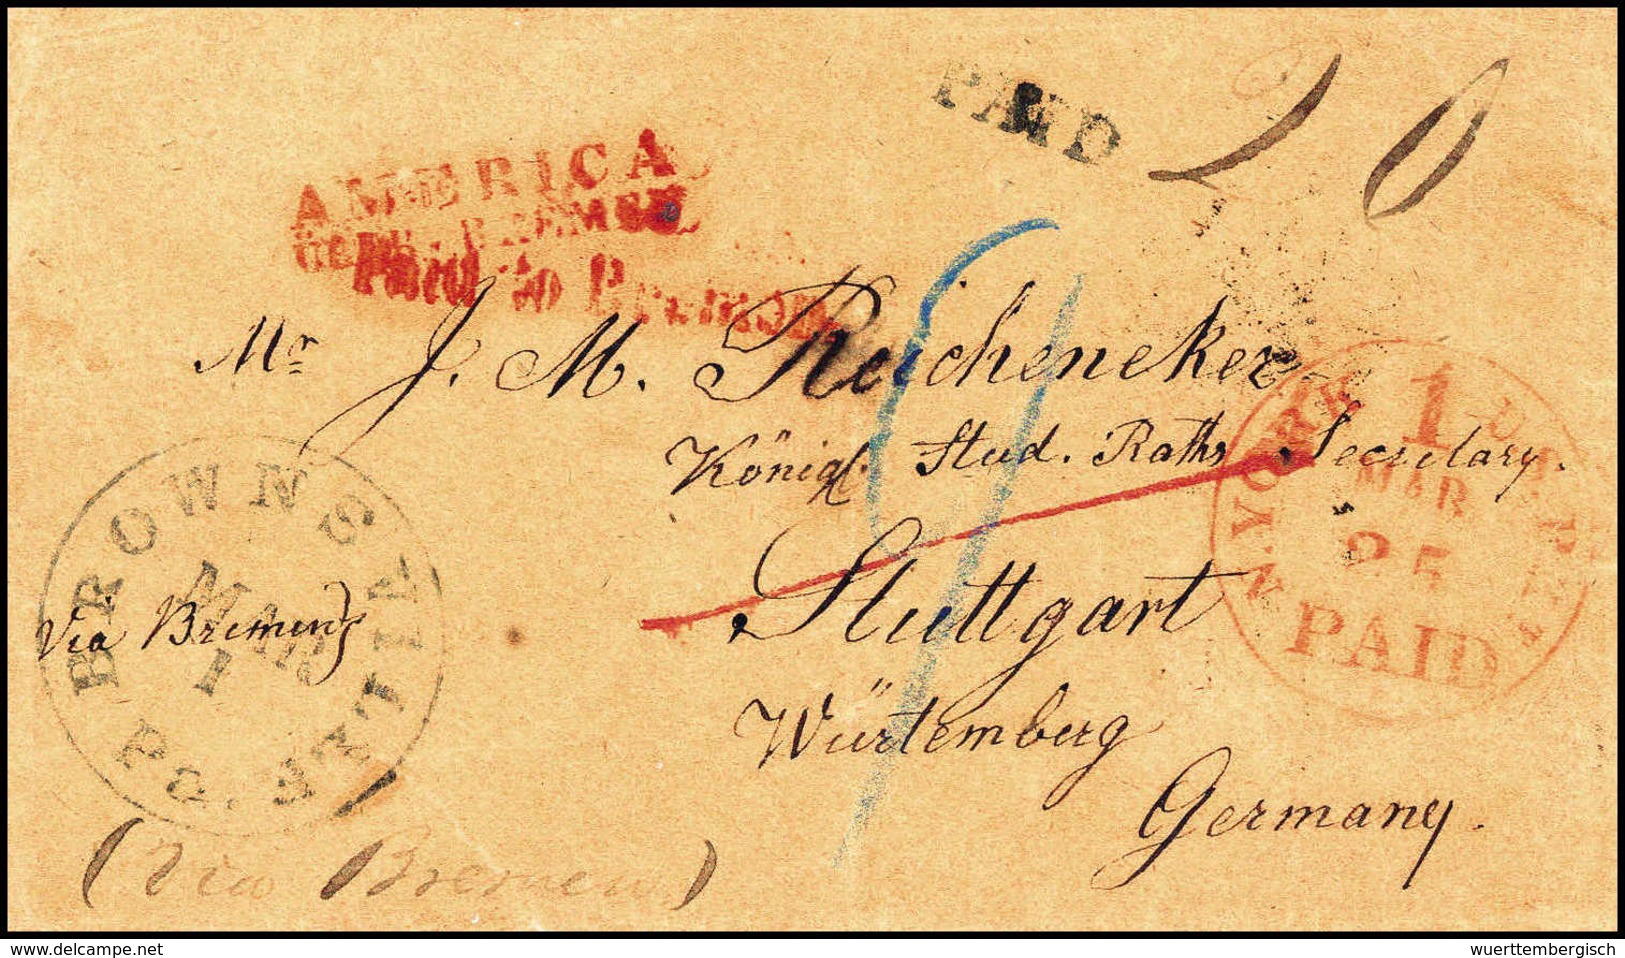 PAID
20
AMERICA
ÜBER BREMEN
Paid to Bremen
Mr J. M. Reicheneker
Königl. Stud. Raths Secretary.
Stuttgart
Würtemberg
Germany.
N. YORK 1 U.S. PKT
MAR
25
PAID
BROWNSVILLE Pa.
MAR
1
Via Bremen
(Via Bremen)
www.delcampe.net
wuerttembergisch